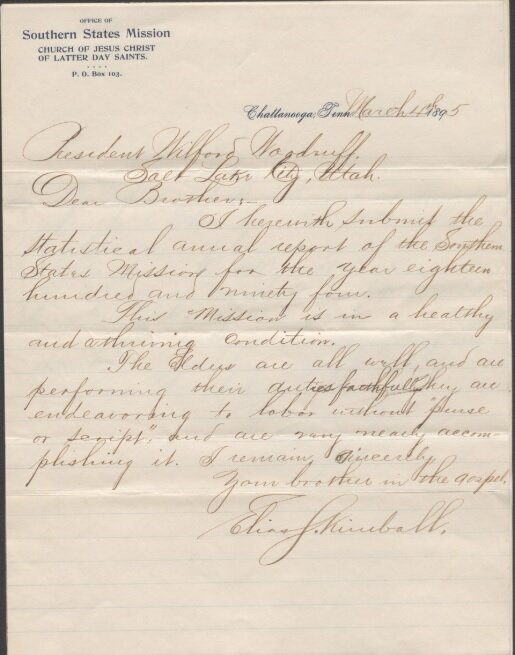 OFFICE OF
Southern States Mission
CHURCH OF JESUS CHRIST
OF LATTER DAY SAINTS.
....
P. O. Box 103.
Chattanooga, Tenn March 4th 1895
President Wilford Woodruff,
Salt Lake City, Utah.
Dear Brother:-
I herewith submit the
statistical annual report of the Southern
States Mission for the year eighteen
hundred and ninety four.
This Mission is in a healthy
and thriving condition.
The Elders are all well, and are
performing their duties faithfully they are
endeavoring to labor without "purse
or script", and are very nearly accom-
plishing it. I remain, Sincerely,
Your brother in the gospel.
Elias S. Kimball.